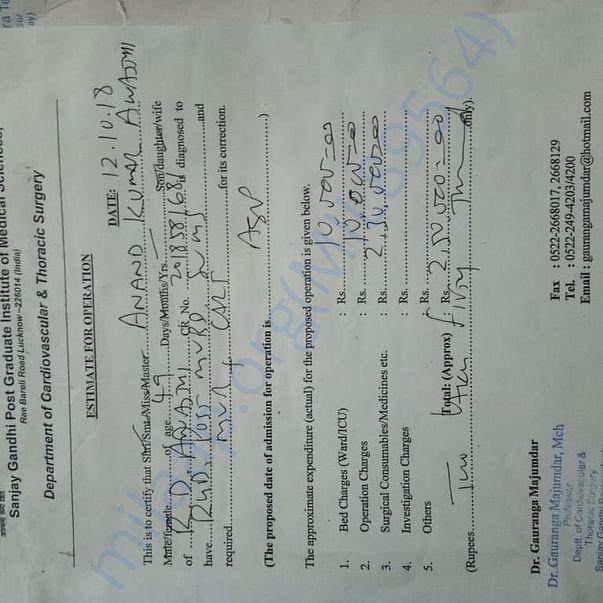 Sanjay Gandhi Post Graduate Institute of Medical Sciences,
Rae Bareli Road Lucknow –226014 (India)
Department of Cardiovascular & Thoracic Surgery
ESTIMATE FOR OPERATION
DATE: 12.10.18
This is to certify that Shri/Smt./Miss/Master ANAND KUMAR AWASTHI
Male/female of age 49 Days/Months/Yrs. Son/daughter/wife
of K.D. AWASTHI CR. No. 2018581681 is diagnosed to
have RHD, POST MVRD and
required MVR for its correction.
(The proposed date of admission for operation is ASAP)
The approximate expenditure (actual) for the proposed operation is given below.
1. Bed Charges (Ward/ICU) : Rs. 10,000=00
2. Operation Charges : Rs. 10,000=00
3. Surgical Consumables/Medicines etc. : Rs. 2,30,000=00
4. Investigation Charges : Rs.
5. Others : Rs.
Total: (Approx) : Rs. 2,50,000=00
(Rupees Two Lakh Fifty Th only).
Dr. Gauranga Majumdar
Dr. Gauranga Majumdar, Mch
Professor
Deptt. of Cardiovascular &
Thoracic Surgery
Fax : 0522-2668017, 2668129
Tel. : 0522-249-4203/4200
Email : gaurangamajumdar@hotmail.com